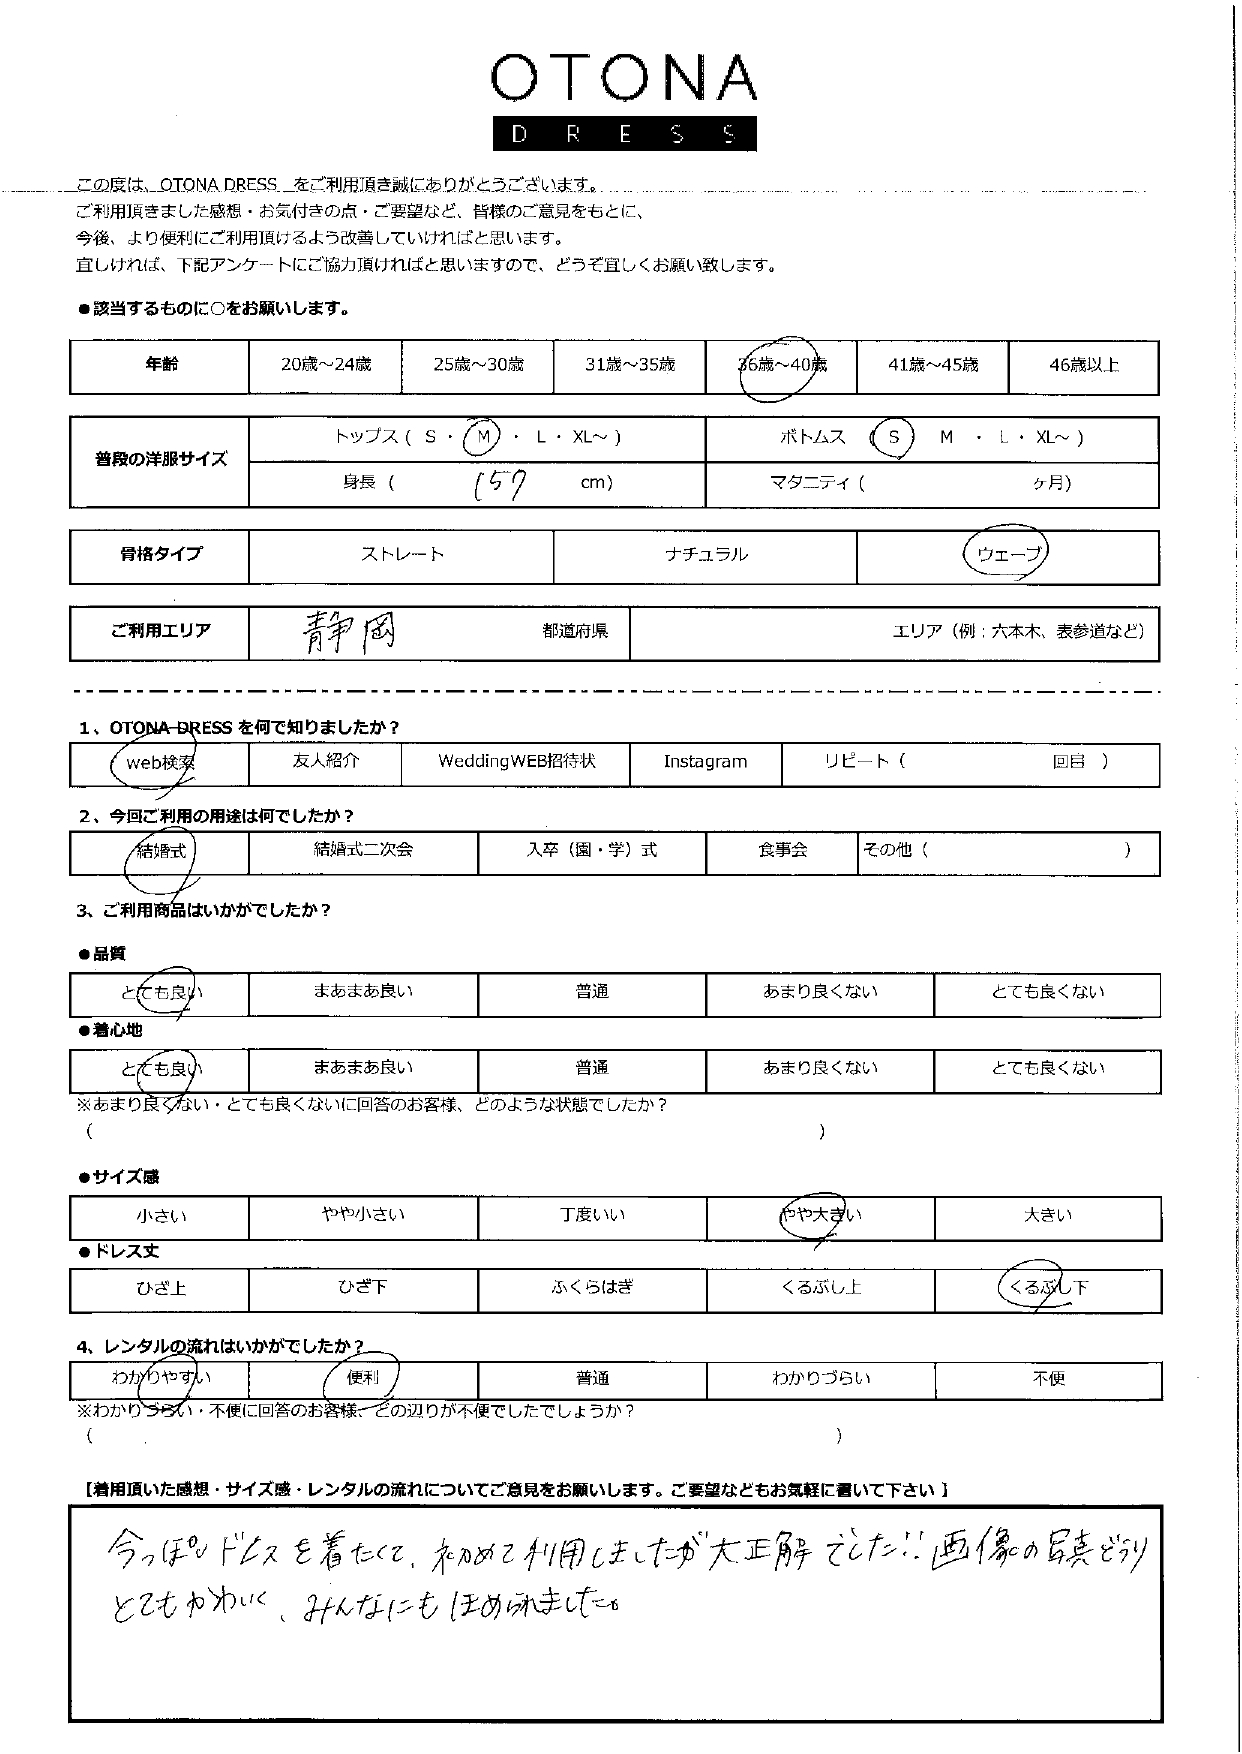 OTONA
DRESS
この度は、OTONA DRESS をご利用頂き誠にありがとうございます。
ご利用頂きました感想・お気付きの点・ご要望など、皆様のご意見をもとに、
今後、より便利にご利用頂けるよう改善していければと思います。
宜しければ、下記アンケートにご協力頂ければと思いますので、どうぞ宜しくお願い致します。
●該当するものに○をお願いします。
年齢 20歳～24歳 25歳～30歳 31歳～35歳 36歳～40歳 41歳～45歳 46歳以上
普段の洋服サイズ トップス ( S ・ M ・ L ・ XL～ ) ボトムス ( S M ・ L ・ XL～ )
身長 ( 157 cm) マタニティ ( ヶ月)
骨格タイプ ストレート ナチュラル ウェーブ
ご利用エリア 静岡 都道府県 エリア（例：六本木、表参道など）
1、OTONA DRESS を何で知りましたか？
web検索 友人紹介 WeddingWEB招待状 Instagram リピート ( 回目 )
2、今回ご利用の用途は何でしたか？
結婚式 結婚式二次会 入卒（園・学）式 食事会 その他 ( )
3、ご利用商品はいかがでしたか？
●品質
とても良い まあまあ良い 普通 あまり良くない とても良くない
●着心地
とても良い まあまあ良い 普通 あまり良くない とても良くない
※あまり良くない・とても良くないに回答のお客様、どのような状態でしたか？
( )
●サイズ感
小さい やや小さい 丁度いい やや大きい 大きい
●ドレス丈
ひざ上 ひざ下 ふくらはぎ くるぶし上 くるぶし下
4、レンタルの流れはいかがでしたか？
わかりやすい 便利 普通 わかりづらい 不便
※わかりづらい・不便に回答のお客様、どの辺りが不便でしたでしょうか？
( )
【着用頂いた感想・サイズ感・レンタルの流れについてご意見をお願いします。ご要望などもお気軽に書いて下さい】
今っぽいドレスを着たくて、初めて利用しましたが大正解でした!! 画像の写真どうり
とてもかわいく、みんなにもほめられました。